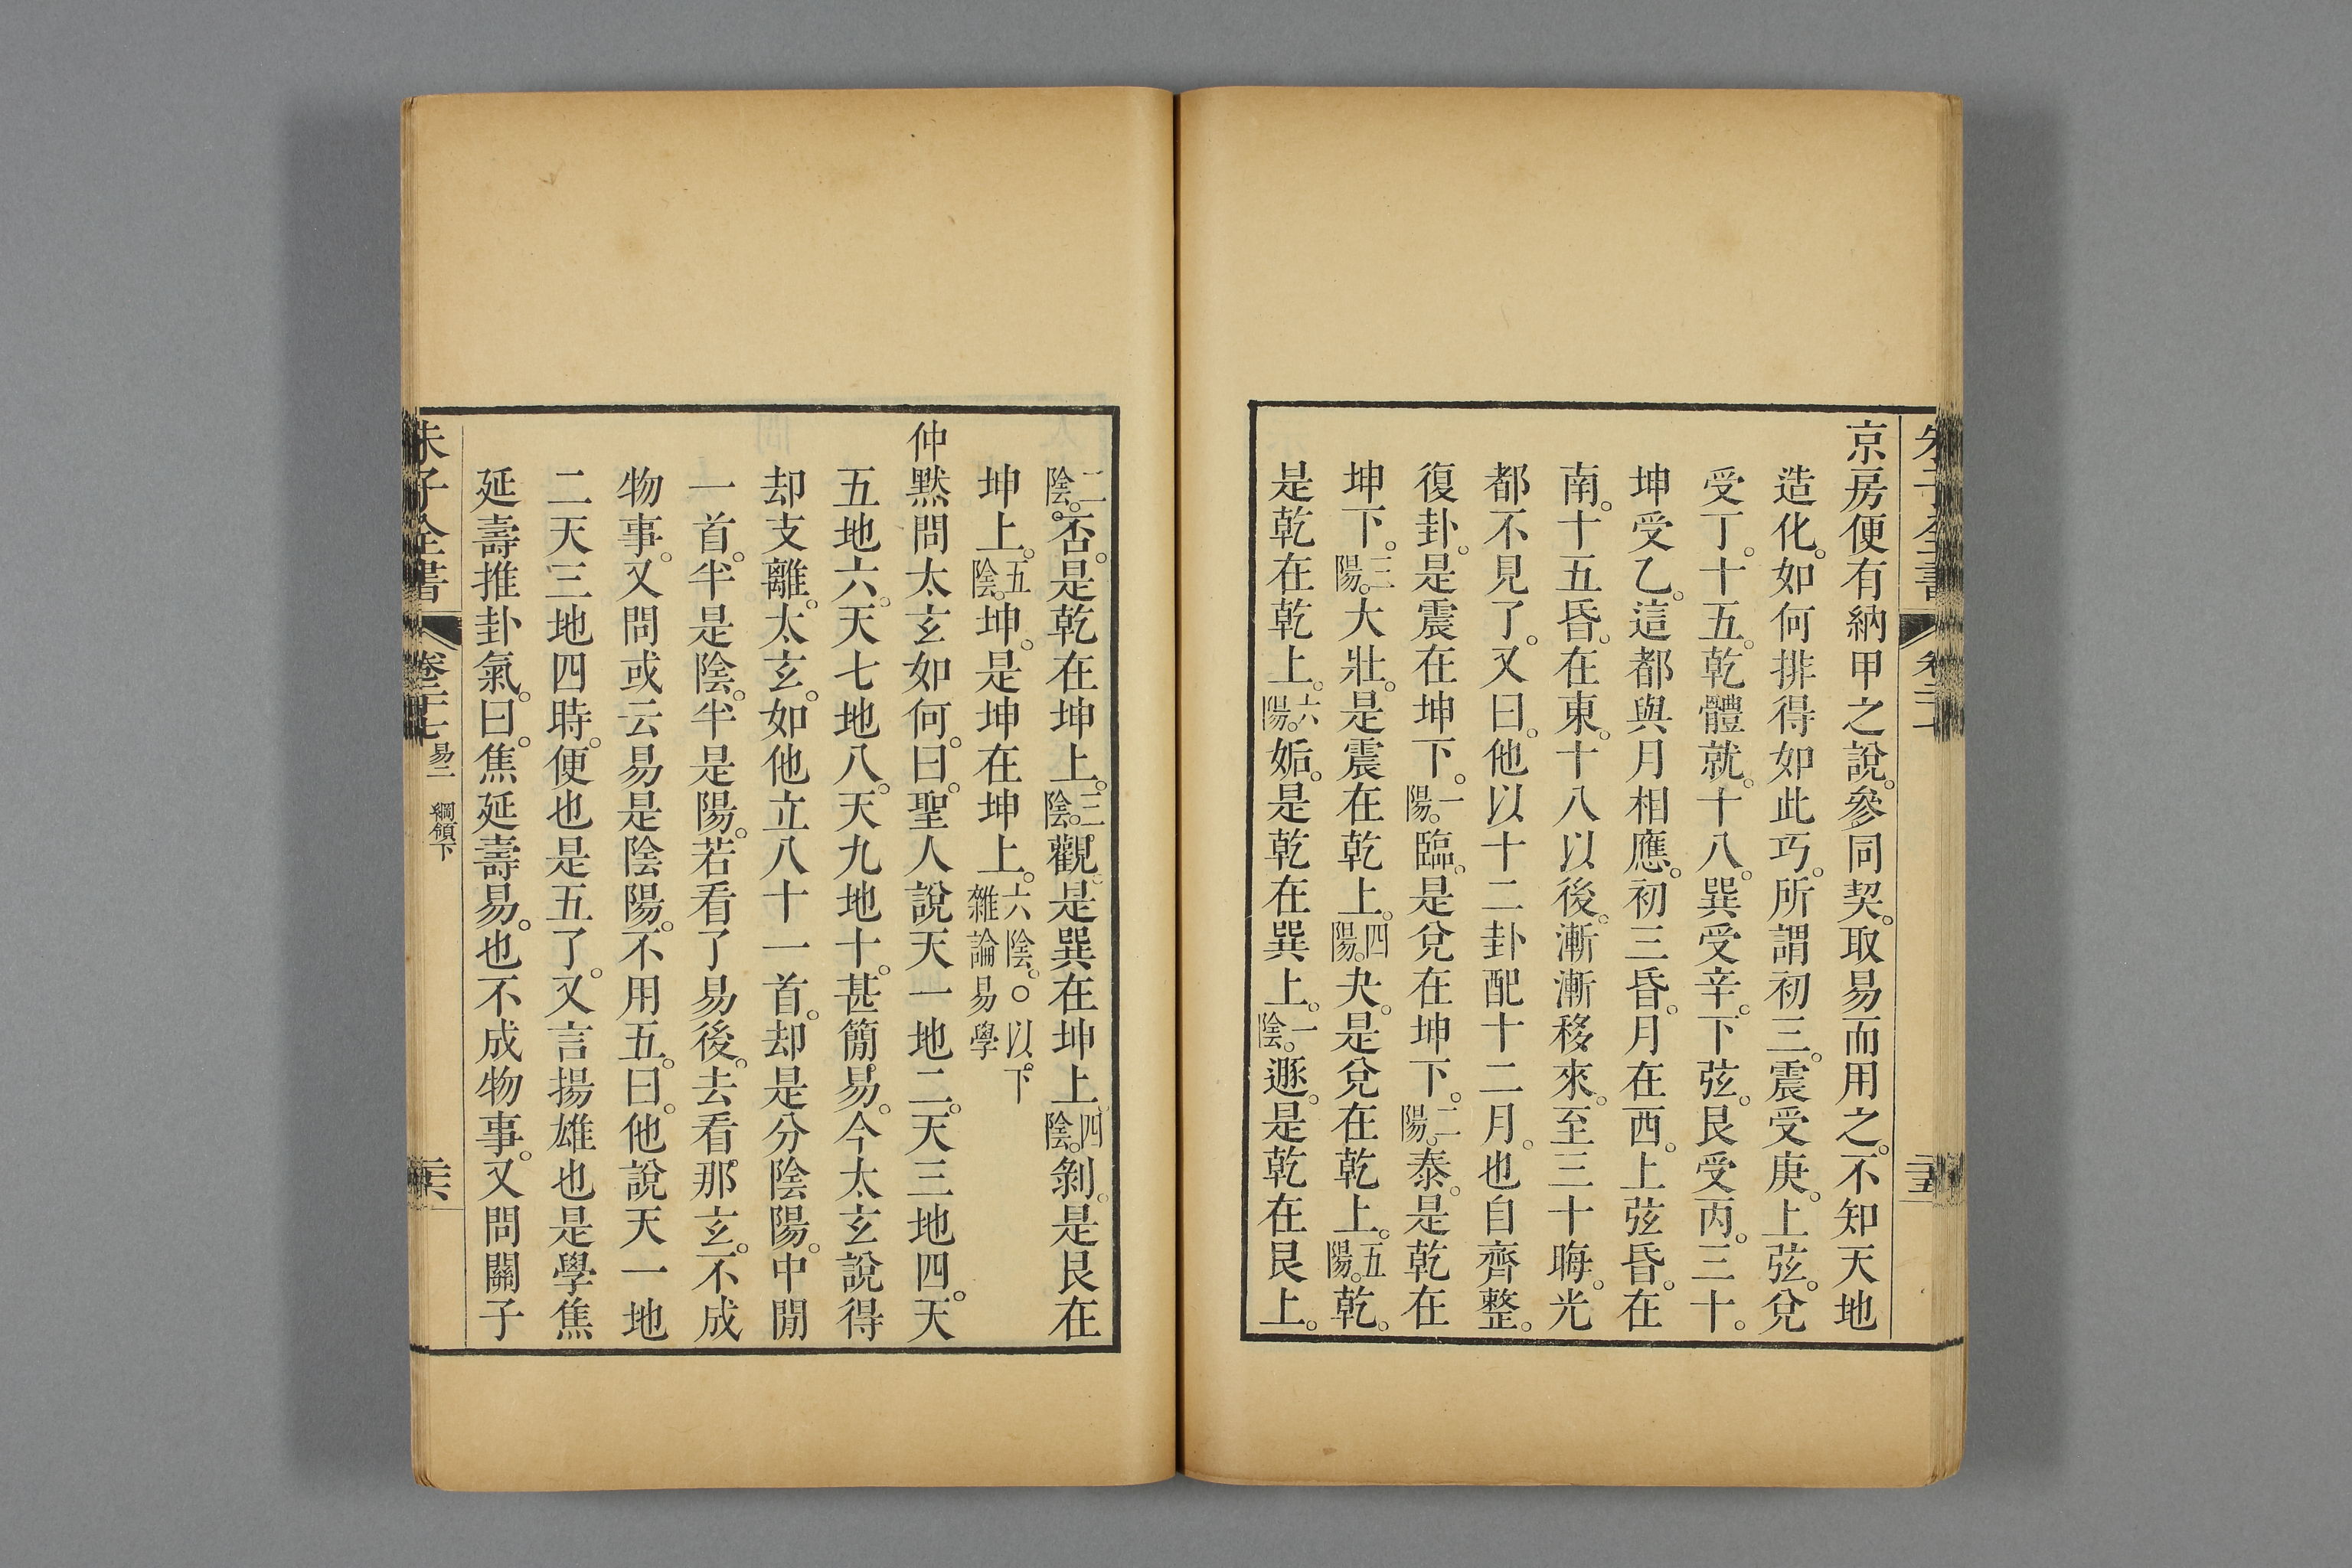 朱子全書 卷二十七 二十五
京房便有納甲之說。參同契。取易而用之。不知天地
造化。如何排得如此巧。所謂初三。震受庚。上弦。兌
受丁。十五。乾體就。十八。巽受辛。下弦。艮受丙。三十。
坤受乙。這都與月相應。初三昏。月在西。上弦昏。在
南。十五昏。在東。十八以後。漸漸移來。至三十晦。光
都不見了。又曰。他以十二卦配十二月。也自齊整。
復卦。是震在坤下。一陽。臨。是兌在坤下。二陽。泰。是乾在
坤下。三陽。大壯。是震在乾上。四陽。夬。是兌在乾上。五陽。乾。
是乾在乾上。六陽。姤。是乾在巽上。一陰。遯。是乾在艮上。
二陰。否。是乾在坤上。三陰。觀。是巽在坤上四陰。剝。是艮在
坤上。五陰。坤。是坤在坤上。六陰。○以下雜論易學
仲黙問太玄如何。曰。聖人說天一地二。天三地四。天
五地六。天七地八。天九地十。甚簡易。今太玄說得
却支離。太玄。如他立八十一首。却是分陰陽。中閒
一首。半是陰。半是陽。若看了易後。去看那玄。不成
物事。又問或云易是陰陽。不用五。曰。他說天一地
二天三地四時。便也是五了。又言揚雄也是學焦
延壽推卦氣。曰。焦延壽易。也不成物事。又問關子
朱子全書 卷二十七 易二 綱領下 二十六